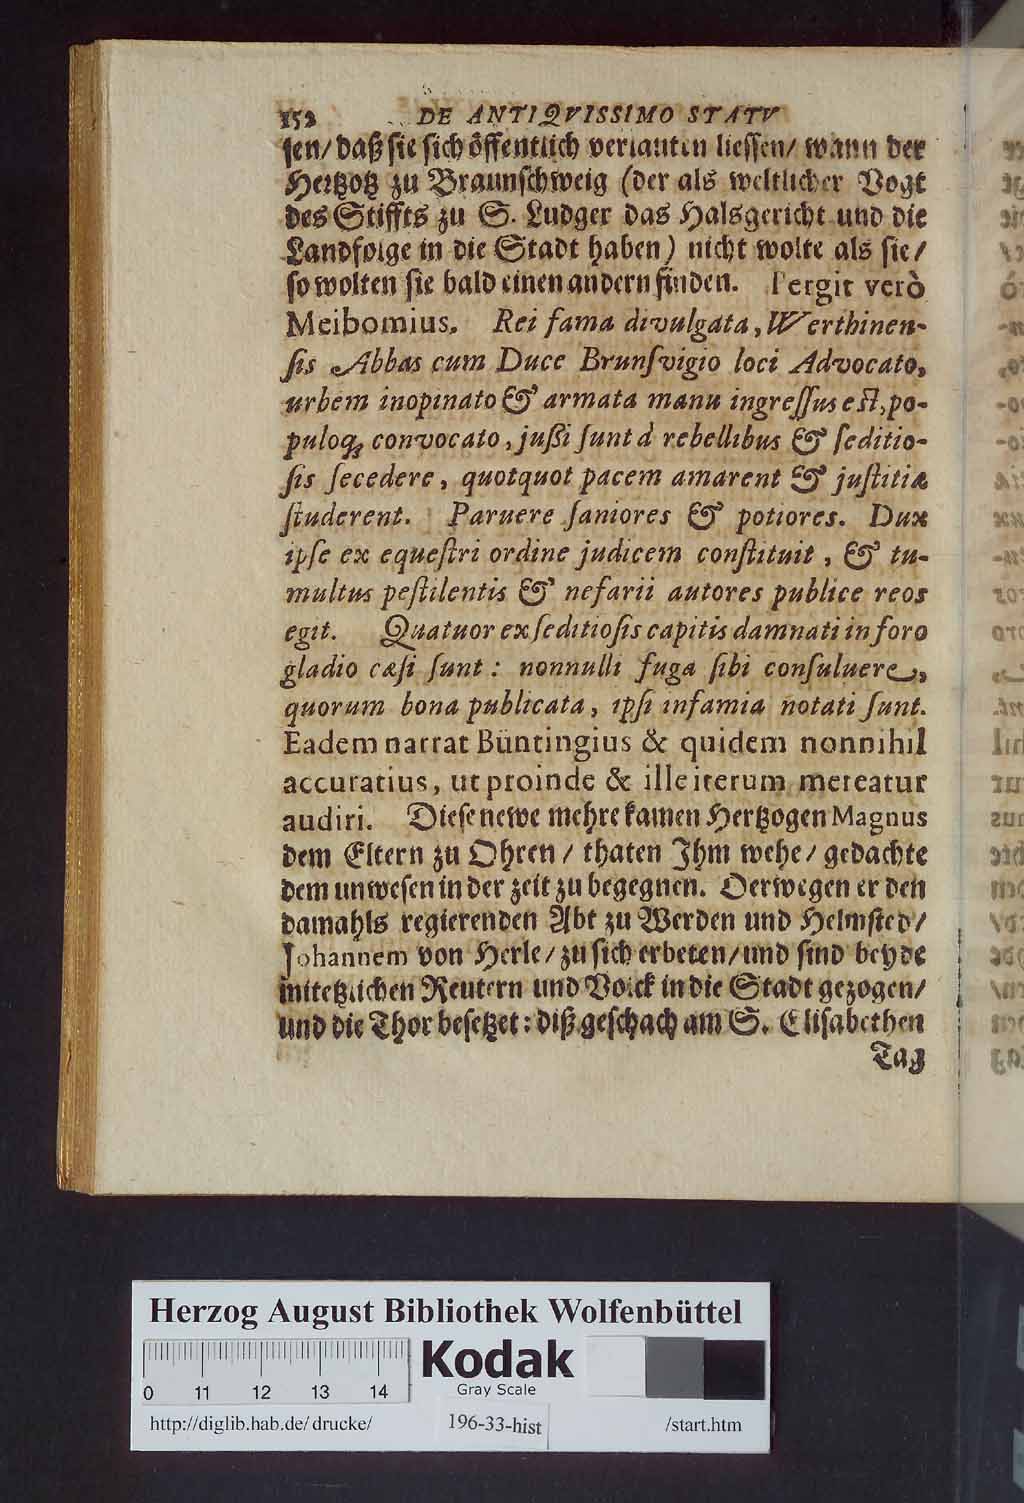 152 DE ANTIQVISSIMO STATV
sen/ daß sie sich öffentlich verlauten liessen/ wann der
Hertzog zu Braunschweig (der als weltlicher Vogt
des Stiffts zu S. Ludger das Halsgericht und die
Landfolge in die Stadt haben) nicht wolte als sie/
so wolten sie bald einen andern finden. Pergit verò
Meibomius. Rei fama divulgata, Werthinen-
sis Abbas cum Duce Brunsvigio loci Advocato,
urbem inopinato & armata manu ingressus est, po-
puloq; convocato, jussi sunt à rebellibus & seditio-
sis secedere, quotquot pacem amarent & justitiæ
studerent. Paruere saniores & potiores. Dux
ipse ex equestri ordine judicem constituit, & tu-
multus pestilentis & nefarii autores publice reos
egit. Quatuor ex seditiosis capitis damnati in foro
gladio cæsi sunt: nonnulli fuga sibi consuluere,
quorum bona publicata, ipsi infamia notati sunt.
Eadem narrat Büntingius & quidem nonnihil
accuratius, ut proinde & ille iterum mereatur
audiri. Diese newe mehre kamen Hertzogen Magnus
dem Eltern zu Ohren / thaten Ihm wehe/ gedachte
dem unwesen in der zeit zu begegnen. Derwegen er den
damahls regierenden Abt zu Werden und Helmsted/
Johannem von Herle/ zu sich erbeten/ und sind beyde
mit etzlichen Reutern und Volck in die Stadt gezogen/
und die Thor besetzet: diß geschach am S. Elisabethen
Tag
Herzog August Bibliothek Wolfenbüttel
Kodak
Gray Scale
0 11 12 13 14
http://diglib.hab.de/drucke/ 196-33-hist /start.htm